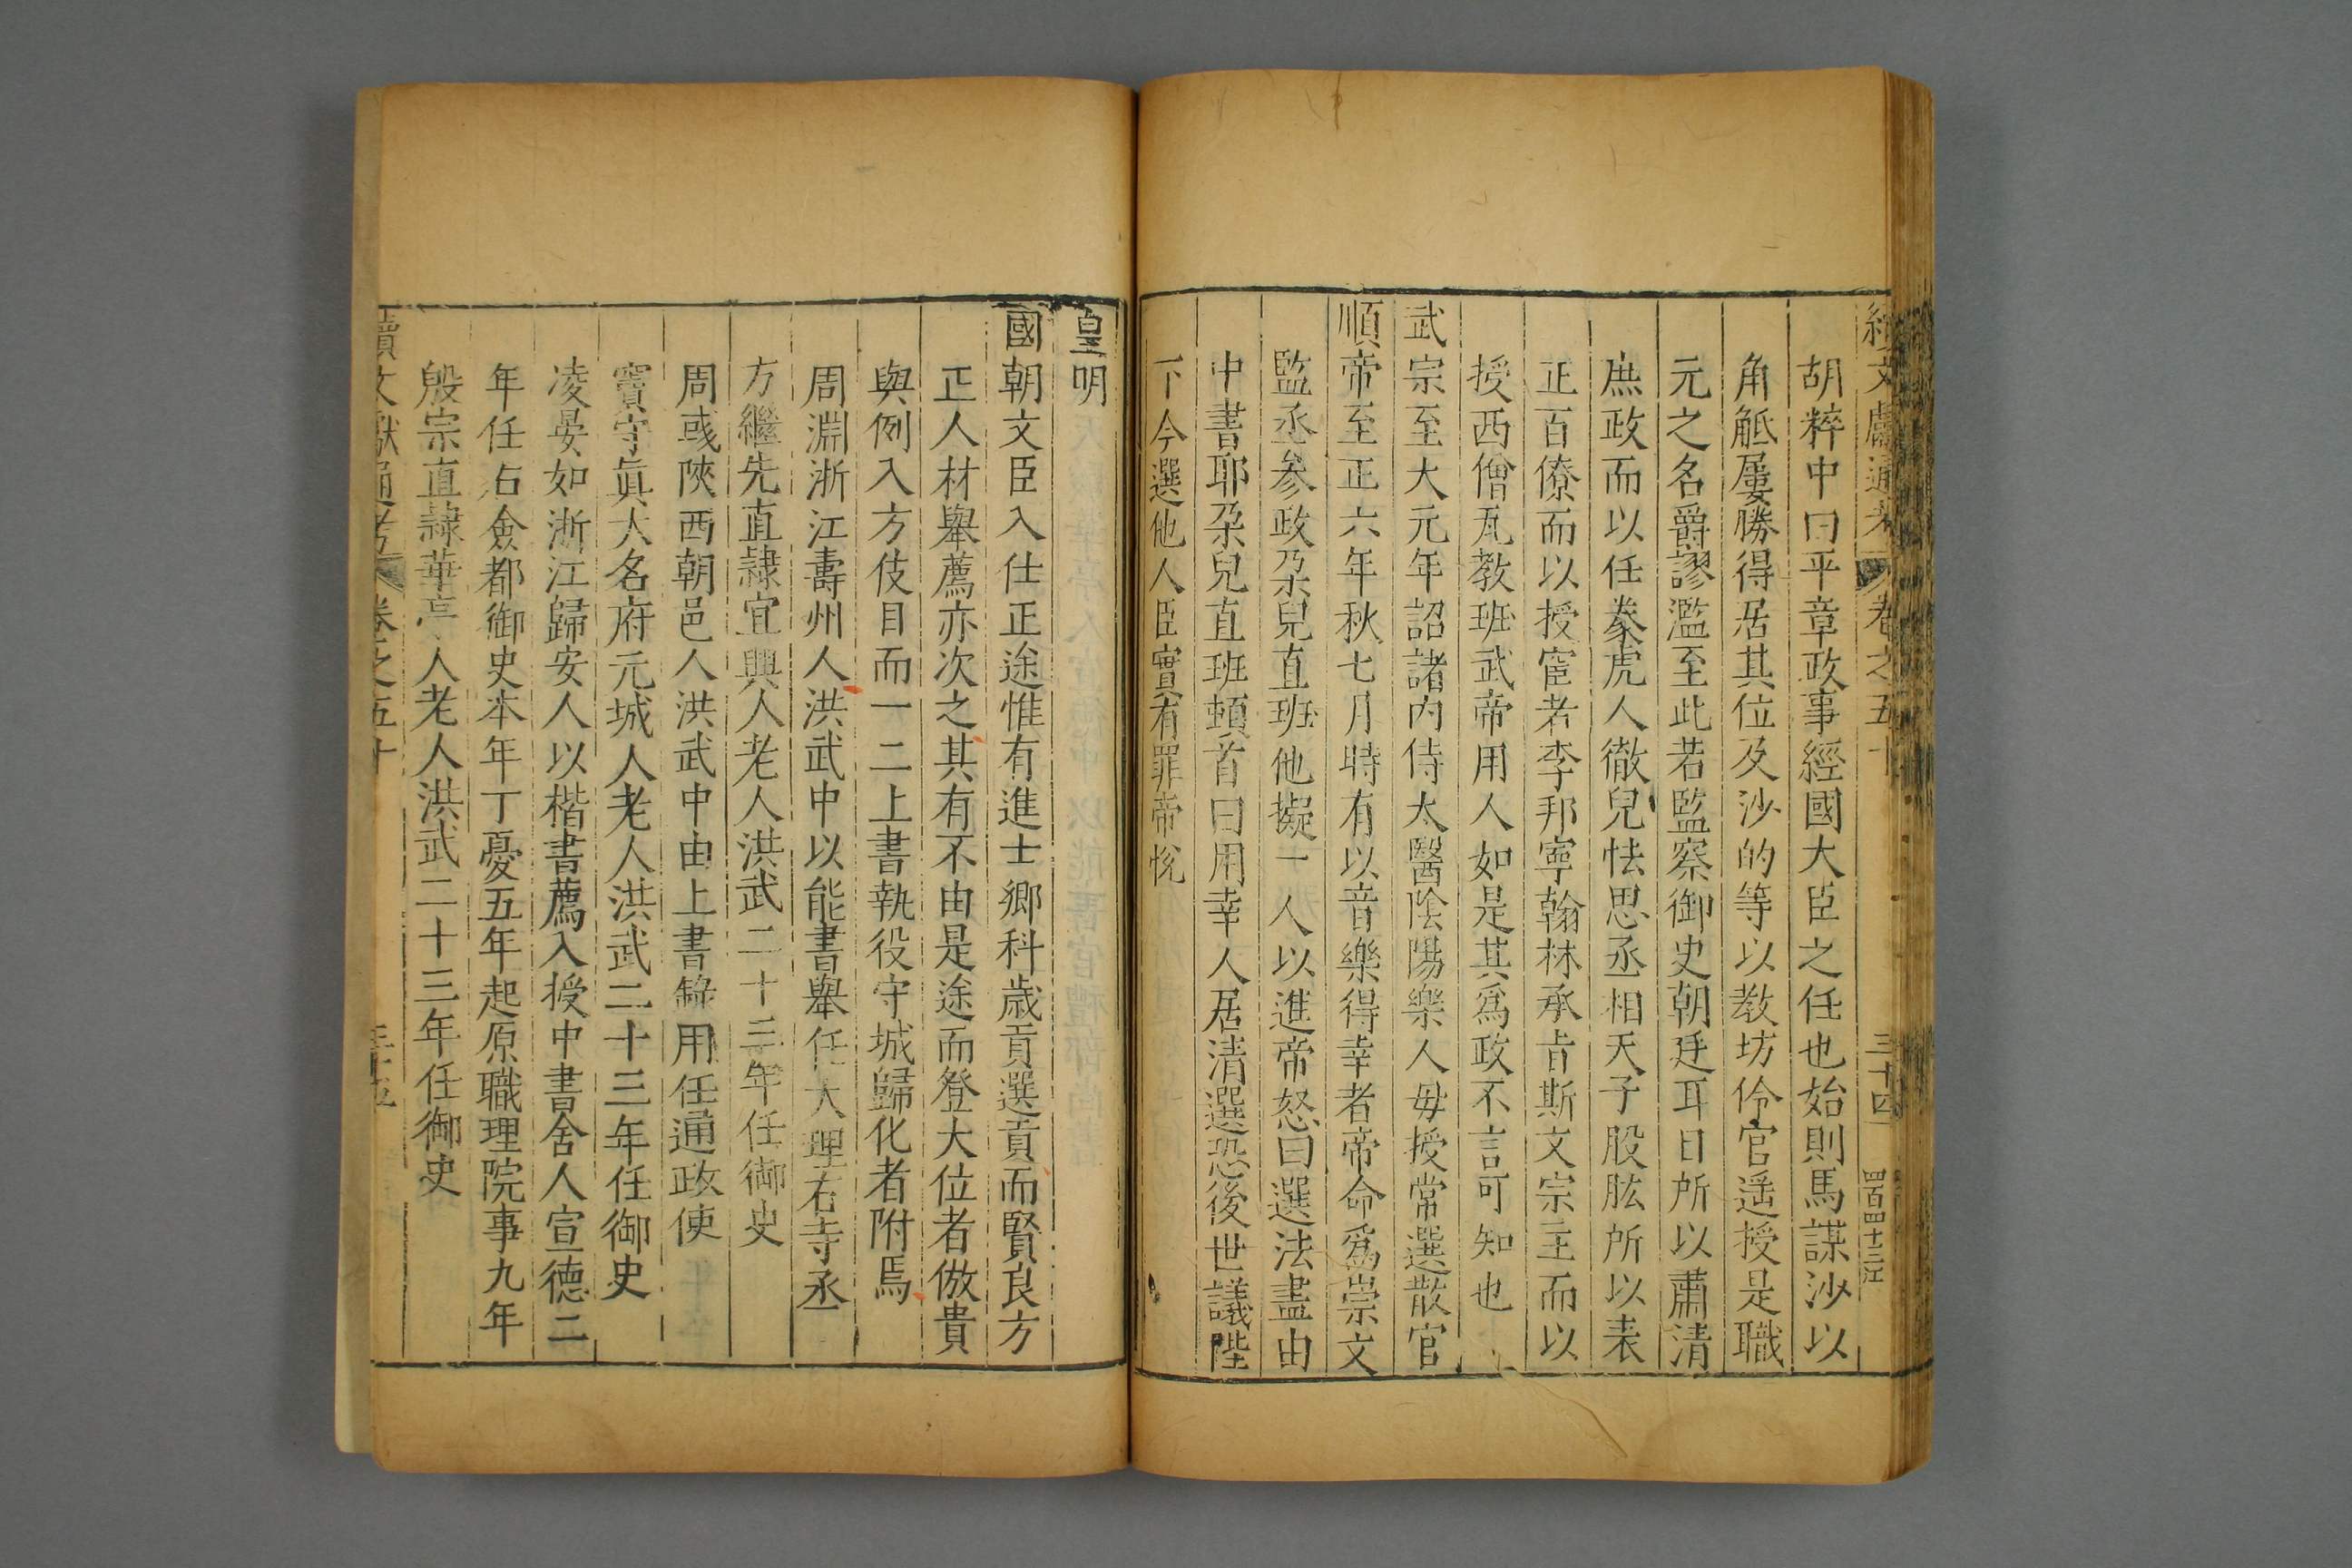 續文獻通考 卷之五十 三十四 四百四十三江
胡粹中曰平章政事經國大臣之任也始則馬謀沙以
角觝屢勝得居其位及沙的等以教坊伶官遥授是職
元之名爵謬濫至此若監察御史朝廷耳目所以肅清
庶政而以任豢虎人徹兒怯思丞相天子股肱所以表
正百僚而以授宦者李邦寧翰林承旨斯文宗主而以
授西僧瓦教班武帝用人如是其爲政不言可知也
武宗至大元年詔諸内侍太醫陰陽樂人毋授常選散官
順帝至正六年秋七月時有以音樂得幸者帝命爲崇文
監丞參政朶兒直班他擬一人以進帝怒曰選法盡由
中書耶朶兒直班頓首曰用幸人居清選恐後世議陛
下今選他人臣實有罪帝悅
皇明
國朝文臣入仕正途惟有進士鄉科歲貢選貢而賢良方
正人材舉薦亦次之其有不由是途而登大位者倣貴
與例入方伎目而一二上書執役守城歸化者附焉
周淵浙江壽州人洪武中以能書舉任大理右寺丞
方繼先直隸宜興人老人洪武二十三年任御史
周彧陝西朝邑人洪武中由上書錄用任通政使
竇守眞大名府元城人老人洪武二十三年任御史
凌晏如浙江歸安人以楷書薦入授中書舍人宣德二
年任右僉都御史本年丁憂五年起原職理院事九年
殷宗直隸華亭人老人洪武二十三年任御史
續文獻通考 卷之五十 三十五